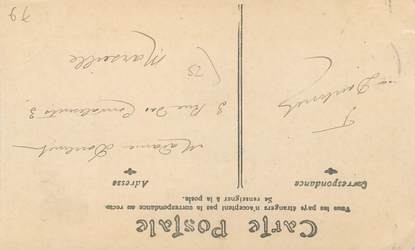 Carte Postale
Tous les pays étrangers n'acceptent pas la correspondance au recto.
Se renseigner à la poste.
Correspondance
Adresse
Madame
3 Rue des Convalescents 3
Marseille
79